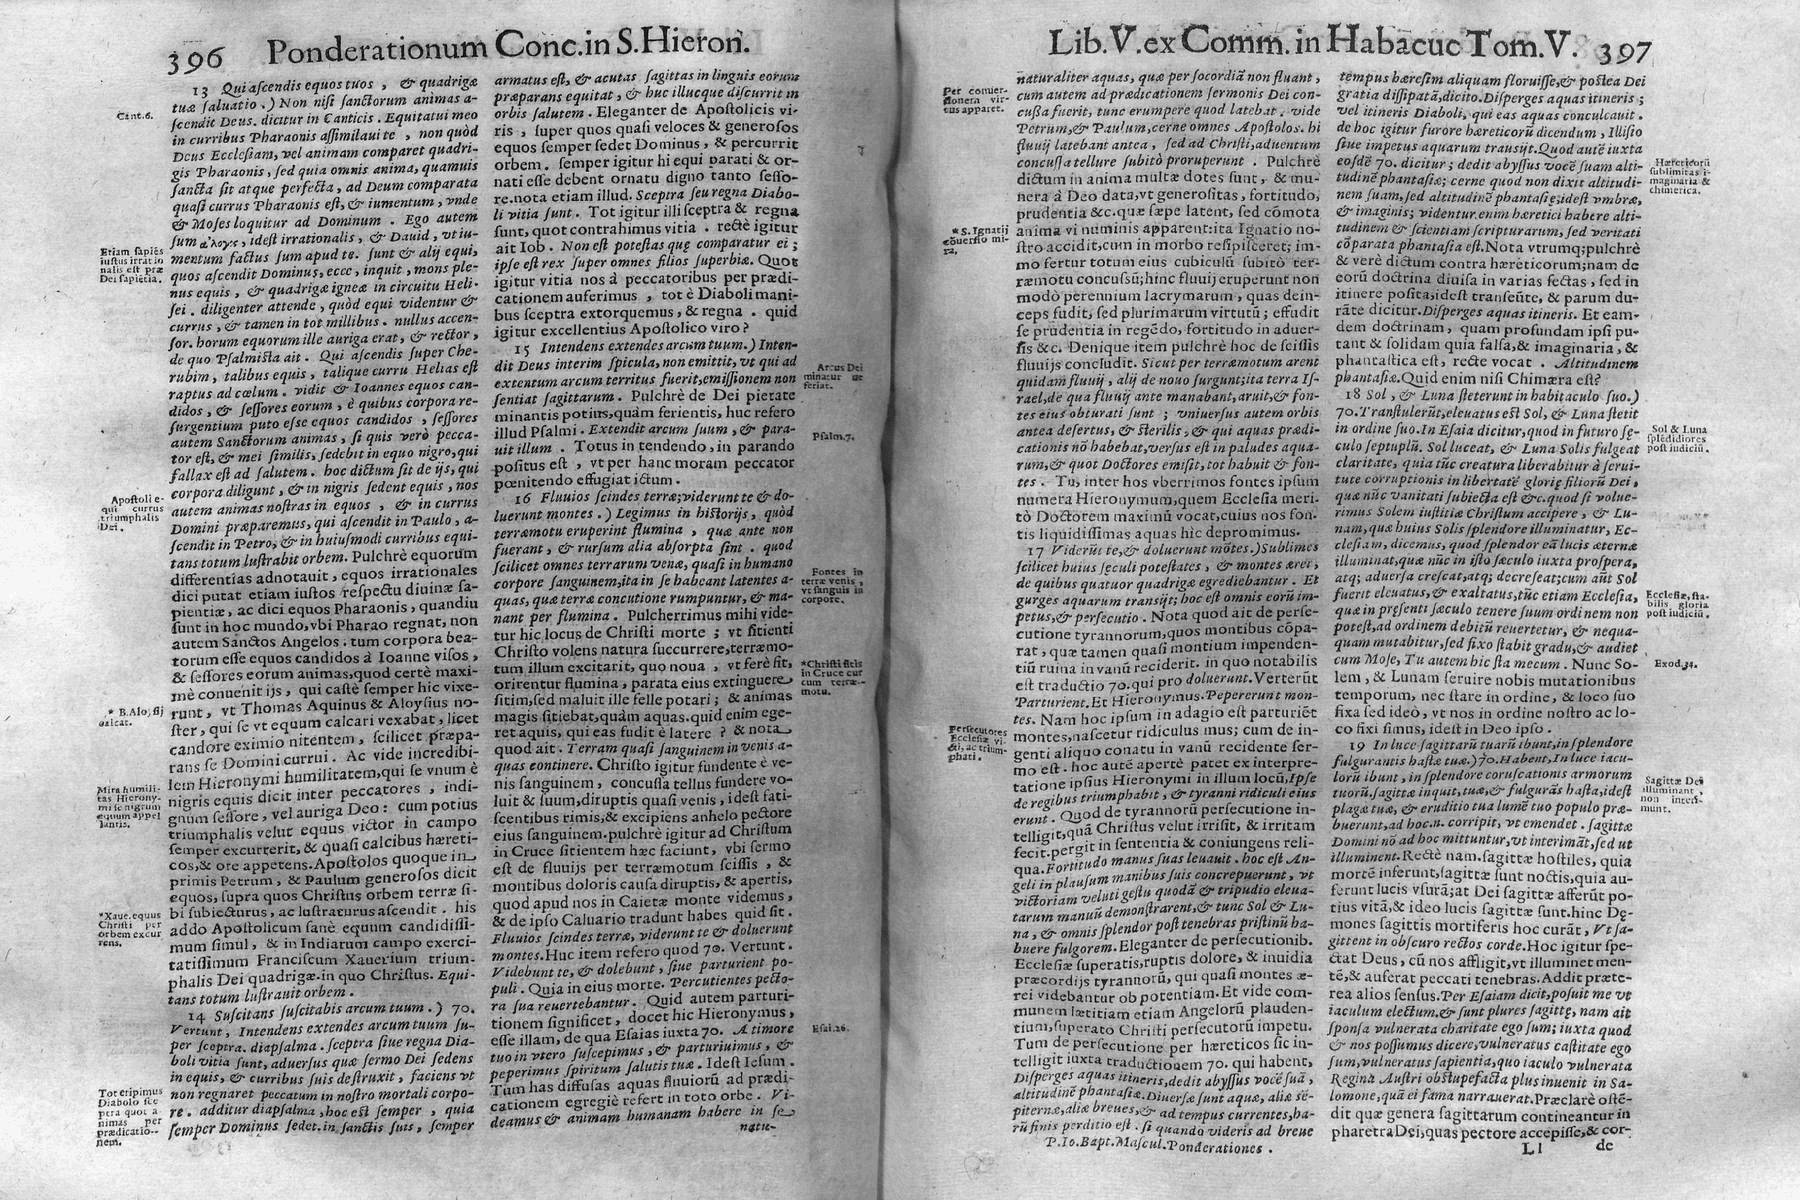 396 Ponderationum Conc. in S. Hieron.
13 Qui ascendis equos tuos , & quadrigæ
tuæ saluatio .) Non nisi sanctorum animas a-
scendit Deus. dicitur in Canticis . Equitatui meo
in curribus Pharaonis assimilaui te , non quòd
Deus Ecclesiam, vel animam comparet quadri-
gis Pharaonis , sed quia omnis anima, quamuis
sancta sit atque perfecta, ad Deum comparata
quasi currus Pharaonis est, & iumentum, vnde
& Moses loquitur ad Dominum . Ego autem
sum ἄλογος, idest irrationalis , & Dauid, vt iu-
mentum factus sum apud te. sunt & alij equi,
quos ascendit Dominus, ecce, inquit, mons ple-
nus equis , & quadrigæ igneæ in circuitu Heli-
sei . diligenter attende , quòd equi videntur &
currus , & tamen in tot millibus . nullus accen-
sor. horum equorum ille auriga erat, & rector ,
de quo Psalmista ait . Qui ascendis super Che-
rubim , talibus equis , talique curru Helias est
raptus ad cœlum . vidit & Ioannes equos can-
didos , & sessores eorum , è quibus corpora re-
surgentium puto esse equos candidos , sessores
autem Sanctorum animas , si quis verò pecca-
tor est, & mei similis, sedebit in equo nigro, qui
fallax est ad salutem . hoc dictum sit de ijs, qui
corpora diligunt , & in nigris sedent equis , nos
autem animas nostras in equos , & in currus
Domini præparemus, qui ascendit in Paulo, a-
scendit in Petro, & in huiusmodi curribus equi-
tans totum lustrabit orbem. Pulchrè equorum
differentias adnotauit , equos irrationales
dici putat etiam iustos respectu diuinæ sa-
pientiæ, ac dici equos Pharaonis, quandiu
sunt in hoc mundo, vbi Pharao regnat, non
autem Sanctos Angelos . tum corpora bea-
torum esse equos candidos à Ioanne visos ,
& sessores eorum animas, quod certè maxi-
mè conuenit ijs , qui castè semper hic vixe-
runt , vt Thomas Aquinus & Aloysius no-
ster , qui se vt equum calcari vexabat, licet
candore eximio nitentem , scilicet præpa-
rans se Domini currui . Ac vide incredibi-
lem Hieronymi humilitatem, qui se vnum è
nigris equis dicit inter peccatores , indi-
gnum sessore, vel auriga Deo : cum potius
triumphalis velut equus victor in campo
semper excurrerit, & quasi calcibus hæreti-
cos, & ore appetens. Apostolos quoque in
primis Petrum , & Paulum generosos dicit
equos, supra quos Christus orbem terræ si-
bi subiecturus , ac lustraturus ascendit . his
addo Apostolicum sanè equum candidissi-
mum simul , & in Indiarum campo exerci-
tatissimum Franciscum Xauerium trium-
phalis Dei quadrigæ. in quo Christus. Equi-
tans totum lustrauit orbem .
14 Suscitans suscitabis arcum tuum . ) 70.
Vertunt, Intendens extendes arcum tuum su-
per sceptra. diapsalma . sceptra siue regna Dia-
boli vitia sunt, aduersus quæ sermo Dei sedens
in equis , & curribus suis destruxit , faciens vt
non regnaret peccatum in nostro mortali corpo-
re . additur diapsalma , hoc est semper , quia
semper Dominus sedet. in sanctis suis, semper
armatus est, & acutas sagittas in linguis eorum
præparans equitat , & huc illucque discurrit in
orbis salutem . Eleganter de Apostolicis vi-
ris , super quos quasi veloces & generosos
equos semper sedet Dominus , & percurrit
orbem . semper igitur hi equi parati & or-
nati esse debent ornatu digno tanto sesso-
re. nota etiam illud . Sceptra seu regna Diabo-
li vitia sunt . Tot igitur illi sceptra & regna
sunt, quot contrahimus vitia . rectè igitur
ait Iob . Non est potestas quæ comparatur ei ;
ipse est rex super omnes filios superbiæ. Quot
igitur vitia nos à peccatoribus per prædi-
cationem auferimus , tot è Diaboli mani-
bus sceptra extorquemus, & regna . quid
igitur excellentius Apostolico viro ?
15 Intendens extendes arcum tuum.) Inten-
dit Deus interim spicula, non emittit, vt qui ad
extentum arcum territus fuerit, emissionem non
sentiat sagittarum . Pulchrè de Dei pietate
minantis potius, quàm ferientis, huc refero
illud Psalmi . Extendit arcum suum , & para-
uit illum . Totus in tendendo, in parando
positus est , vt per hanc moram peccator
pœnitendo effugiat ictum .
16 Fluuios scindes terræ; viderunt te & do-
luerunt montes . ) Legimus in historijs, quòd
terræmotu eruperint flumina , quæ ante non
fuerant , & rursum alia absorpta sint . quod
scilicet omnes terrarum venæ, quasi in humano
corpore sanguinem, ita in se habeant latentes a-
quas, quæ terræ concutione rumpuntur, & ma-
nant per flumina . Pulcherrimus mihi vide-
tur hic locus de Christi morte ; vt sitienti
Christo volens natura succurrere, terræmo-
tum illum excitarit, quo noua , vt ferè fit,
orirentur flumina , parata eius extinguere
sitim, sed maluit ille felle potari ; & animas
magis sitiebat, quàm aquas. quid enim ege-
ret aquis, qui eas fudit è latere ? & nota
quod ait . Terram quasi sanguinem in venis a-
quas continere. Christo igitur fundente è ve-
nis sanguinem , concussa tellus fundere vo-
luit & suum, diruptis quasi venis , idest fati-
scentibus rimis, & excipiens anhelo pectore
eius sanguinem. pulchrè igitur ad Christum
in Cruce sitientem hæc faciunt, vbi sermo
est de fluuijs per terræmotum scissis , &
montibus doloris causa diruptis, & apertis,
quod apud nos in Caietæ monte videmus,
& de ipso Caluario tradunt habes quid sit .
Fluuios scindes terræ, viderunt te & doluerunt
montes. Huc item refero quod 70. Vertunt.
Videbunt te, & dolebunt , siue parturient po-
puli . Quia in eius morte. Percutientes pecto-
ra sua reuertebantur . Quid autem parturi-
tionem significet , docet hic Hieronymus,
esse illam, de qua Esaias iuxta 70. A timore
tuo in vtero suscepimus , & parturiuimus , &
peperimus spiritum salutis tuæ . Idest Iesum .
Tum has diffusas aquas fluuiorū ad prædi-
cationem egregiè refert in toto orbe . Vi-
deamus & animam humanam habere in se
natu-
Cant. 6.
Etiam sapiēs
iustus irratio
nalis est præ
Dei sapiētia.
Apostoli e-
qui currus
triumphalis
Dei .
* B. Aloysij
calcar.
Mira humili-
tas Hierony-
mi se nigrum
æquum appel
lantis.
*Xaue. equus
Christi per
orbem excur
rens.
Tot eripimus
Diabolo sce
ptra quot a
nimas per
prædicatio-
nem.
Arcus Dei
minatur ne
feriat.
Psalm. 7.
Fontes in
terræ venis ,
vt sanguis in
corpore.
*Christi sitis
in Cruce cur
cum terræ-
motu.
Esai. 26.
Lib. V. ex Comm. in Habacuc Tom. V. 397
naturaliter aquas, quæ per socordiā non fluant,
cum autem ad prædicationem sermonis Dei con-
cussa fuerit, tunc erumpere quod latebat . vide
Petrum, & Paulum, cerne omnes Apostolos. hi
fluuij latebant antea , sed ad Christi, aduentum
concussa tellure subitò proruperunt . Pulchrè
dictum in anima multæ dotes sunt , & mu-
nera à Deo data, vt generositas , fortitudo,
prudentia &c. quæ sæpe latent, sed cōmota
anima vi numinis apparent: ita Ignatio no-
stro accidit, cum in morbo resipisceret; im-
mo fertur totum eius cubiculū subitò ter-
ræmotu concussū; hinc fluuij eruperunt non
modò perennium lacrymarum , quas dein-
ceps fudit, sed plurimarum virtutū; effudit
se prudentia in regēdo, fortitudo in aduer-
sis &c. Denique item pulchrè hoc de scissis
fluuijs concludit. Sicut per terræmotum arent
quidam fluuij, alij de nouo surgunt; ita terra Is-
rael, de qua fluuij ante manabant, aruit, & fon-
tes eius obturati sunt ; vniuersus autem orbis
antea desertus, & sterilis, & qui aquas prædi-
cationis nō habebat, versus est in paludes aqua-
rum, & quot Doctores emisit, tot habuit & fon-
tes . Tu, inter hos vberrimos fontes ipsum
numera Hieronymum, quem Ecclesia meri-
tò Doctorem maximū vocat, cuius nos fon-
tis liquidissimas aquas hic depromimus.
17 Viderūt te, & doluerunt mōtes.) Sublimes
scilicet huius sęculi potestates , & montes ærei,
de quibus quatuor quadrigæ egrediebantur . Et
gurges aquarum transijt; hoc est omnis eorū im-
petus, & persecutio . Nota quod ait de perse-
cutione tyrannorum, quos montibus cōpa-
rat , quæ tamen quasi montium impenden-
tiū ruina in vanū reciderit. in quo notabilis
est traductio 70. qui pro doluerunt. Verterūt
Parturient. Et Hieronymus. Pepererunt mon-
tes. Nam hoc ipsum in adagio est parturiēt
montes, nascetur ridiculus mus; cum de in-
genti aliquo conatu in vanū recidente ser-
mo est . hoc autē apertè patet ex interpre-
tatione ipsius Hieronymi in illum locū, Ipse
de regibus triumphabit , & tyranni ridiculi eius
erunt . Quod de tyrannorū persecutione in-
telligit, quā Christus velut irrisit, & irritam
fecit. pergit in sententia & coniungens reli-
qua. Fortitudo manus suas leuauit . hoc est An-
geli in plausum manibus suis concrepuerunt , vt
victoriam veluti gestu quodā & tripudio eleua-
tarum manuū demonstrarent, & tunc Sol & Lu-
na , & omnis splendor post tenebras pristinū ha-
buere fulgorem. Eleganter de persecutionib.
Ecclesiæ superatis, ruptis dolore, & inuidia
præcordijs tyrannorū, qui quasi montes æ-
rei videbantur ob potentiam. Et vide com-
munem lætitiam etiam Angelorū plauden-
tium, superato Christi persecutorū impetu.
Tum de persecutione per hæreticos sic in-
telligit iuxta traductionem 70. qui habent,
Disperges aquas itineris, dedit abyssus vocē suā ,
altitudinē phantasiæ. Diuersæ sunt aquæ, aliæ sē-
piternæ, aliæ breues, & ad tempus currentes, ha-
rū finis perditio est . si quando videris ad breue
P. Io. Bapt. Mascul. Ponderationes .
tempus hæresim aliquam floruisse, & postea Dei
gratia dissipatā, dicito. Disperges aquas itineris ;
vel itineris Diaboli, qui eas aquas conculcauit .
de hoc igitur furore hæreticorū dicendum , Illisio
siue impetus aquarum transijt. Quod autē iuxta
eosdē 70. dicitur ; dedit abyssus vocē suam alti-
tudinē phantasiæ; cerne quod non dixit altitudi-
nem suam, sed altitudinē phantasię; idest vmbræ,
& imaginis; videntur. enim hæretici habere alti-
tudinem & scientiam scripturarum, sed veritati
cōparata phantasia est. Nota vtrumq; pulchrè
& verè dictum contra hæreticorum; nam de
eorū doctrina diuisa in varias sectas, sed in
itinere posita, idest transeūte, & parum du-
rāte dicitur. Disperges aquas itineris. Et eam-
dem doctrinam, quam profundam ipsi pu-
tant & solidam quia falsa, & imaginaria , &
phantastica est, recte vocat . Altitudinem
phantasiæ. Quid enim nisi Chimæra est?
18 Sol , & Luna steterunt in habitaculo suo.)
70. Transtulerūt, eleuatus est Sol, & Luna stetit
in ordine suo. In Esaia dicitur, quod in futuro sę-
culo septuplū. Sol luceat, & Luna Solis fulgeat
claritate, quia tūc creatura liberabitur à serui-
tute corruptionis in libertatē glorię filiorū Dei ,
quæ nūc vanitati subiecta est &c. quod si volue-
rimus Solem iustitiæ Christum accipere , & Lu-
nam, quæ huius Solis splendore illuminatur, Ec-
clesiam, dicemus, quod splendor eā lucis æternæ
illuminat, quæ nūc in isto sæculo iuxta prospera,
atq; aduersa crescat, atq; decrescat; cum aūt Sol
fuerit eleuatus, & exaltatus, tūc etiam Ecclesia,
quæ in pręsenti sæculo tenere suum ordinem non
potest, ad ordinem debitū reuertetur, & nequa-
quam mutabitur, sed fixo stabit gradu, & audiet
cum Mose, Tu autem hic sta mecum . Nunc So-
lem , & Lunam seruire nobis mutationibus
temporum, nec stare in ordine, & loco suo
fixa sed ideò, vt nos in ordine nostro ac lo-
co fixi simus, idest in Deo ipso .
19 In luce sagittarū tuarū ibunt, in splendore
fulgurantis hastæ tuæ.) 70. Habent, In luce iacu-
lorū ibunt , in splendore coruscationis armorum
tuorū. sagittæ inquit, tuæ, & fulgurās hasta, idest
plagæ tuæ, & eruditio tua lumē tuo populo præ-
buerunt, ad hoc. n. corripit, vt emendet . sagittæ
Domini nō ad hoc mittuntur, vt interimāt, sed ut
illuminent. Rectè nam. sagittæ hostiles, quia
mortē inferunt, sagittæ sunt noctis, quia au-
ferunt lucis vsurā; at Dei sagittæ afferūt po-
tius vitā, & ideo lucis sagittæ sunt. hinc Dę-
mones sagittis mortiferis hoc curāt, Vt sa-
gittent in obscuro rectos corde. Hoc igitur spe-
ctat Deus, cū nos affligit, vt illuminet men-
tē, & auferat peccati tenebras. Addit præte-
rea alios sensus. Per Esaiam dicit, posuit me vt
iaculum electum. & sunt plures sagittę, nam ait
sponsa vulnerata charitate ego sum; iuxta quod
& nos possumus dicere, vulneratus castitate ego
sum, vulneratus sapientia, quo iaculo vulnerata
Regina Austri obstupefacta plus inuenit in Sa-
lomone, quā ei fama narrauerat. Præclarè ostē-
dit quæ genera sagittarum contineantur in
pharetra Dei, quas pectore accepisse, & cor-
Ll de
Per conuer-
sionem vir-
tus apparet.
* S. Ignatij
cōuersio mi-
ra.
Persecutores
Ecclesiæ vi-
cti, ac trium-
phati.
Hæreticorū
sublimitas i-
maginaria &
chimerica.
Sol & Luna
splēdidiores
post iudiciū.
Ecclesiæ, sta-
bilis gloria
post iudiciū.
Exod. 34.
Sagittæ Dei
illuminant ,
non interi-
munt.